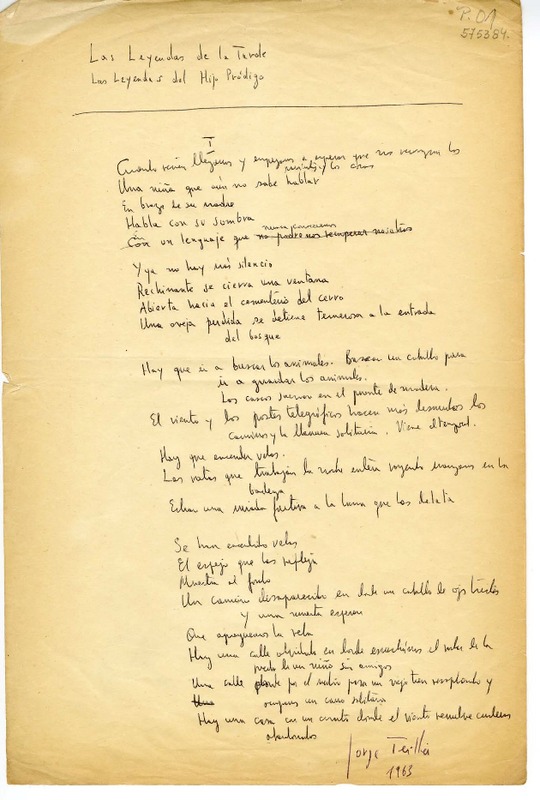 P. 01
575384.
Las Leyendas de la Tarde
Las Leyendas del Hijo Pródigo
I
Cuando recién llegamos y empezamos a esperar que nos reconozcan los
Una niña que aún no sabe hablar
En brazos de su madre
Habla con su sombra
nunca conocimos
Con un lenguaje que no podremos recuperar nosotros
Y ya no hay más silencio
Rechinante se cierra una ventana
Abierta hacia el cementerio del cerro
Una oveja perdida se detiene temerosa a la entrada
del bosque
Hay que ir a buscar los animales. Buscar un caballo para
ir a guardar los animales.
Los cascos suenan en el puente de madera.
El viento y los postes telegráficos hacen más desnudos los
caminos y la llanura solitaria. Viene el temporal.
Hay que encender velas.
Las ratas que trabajan la noche entera royendo manzanas en la
bodega
Echan una mirada furtiva a la luna que las delata
Se han encendido velas
El espejo que las refleja
Muestra al fondo
Un camino desaparecido en donde un caballo de ojos tristes
Y una carreta esperan
Que apaguemos la vela
Hay una calle olvidada en donde escuchamos el rodar de la
rueda de un niño sin amigos
Una calle donde por el malón pasa un viejo tren resoplando y
un carro solitario
Hay una casa en un cuento donde el viento remueve cuadernos
abandonados
Jorge Teillier
1963